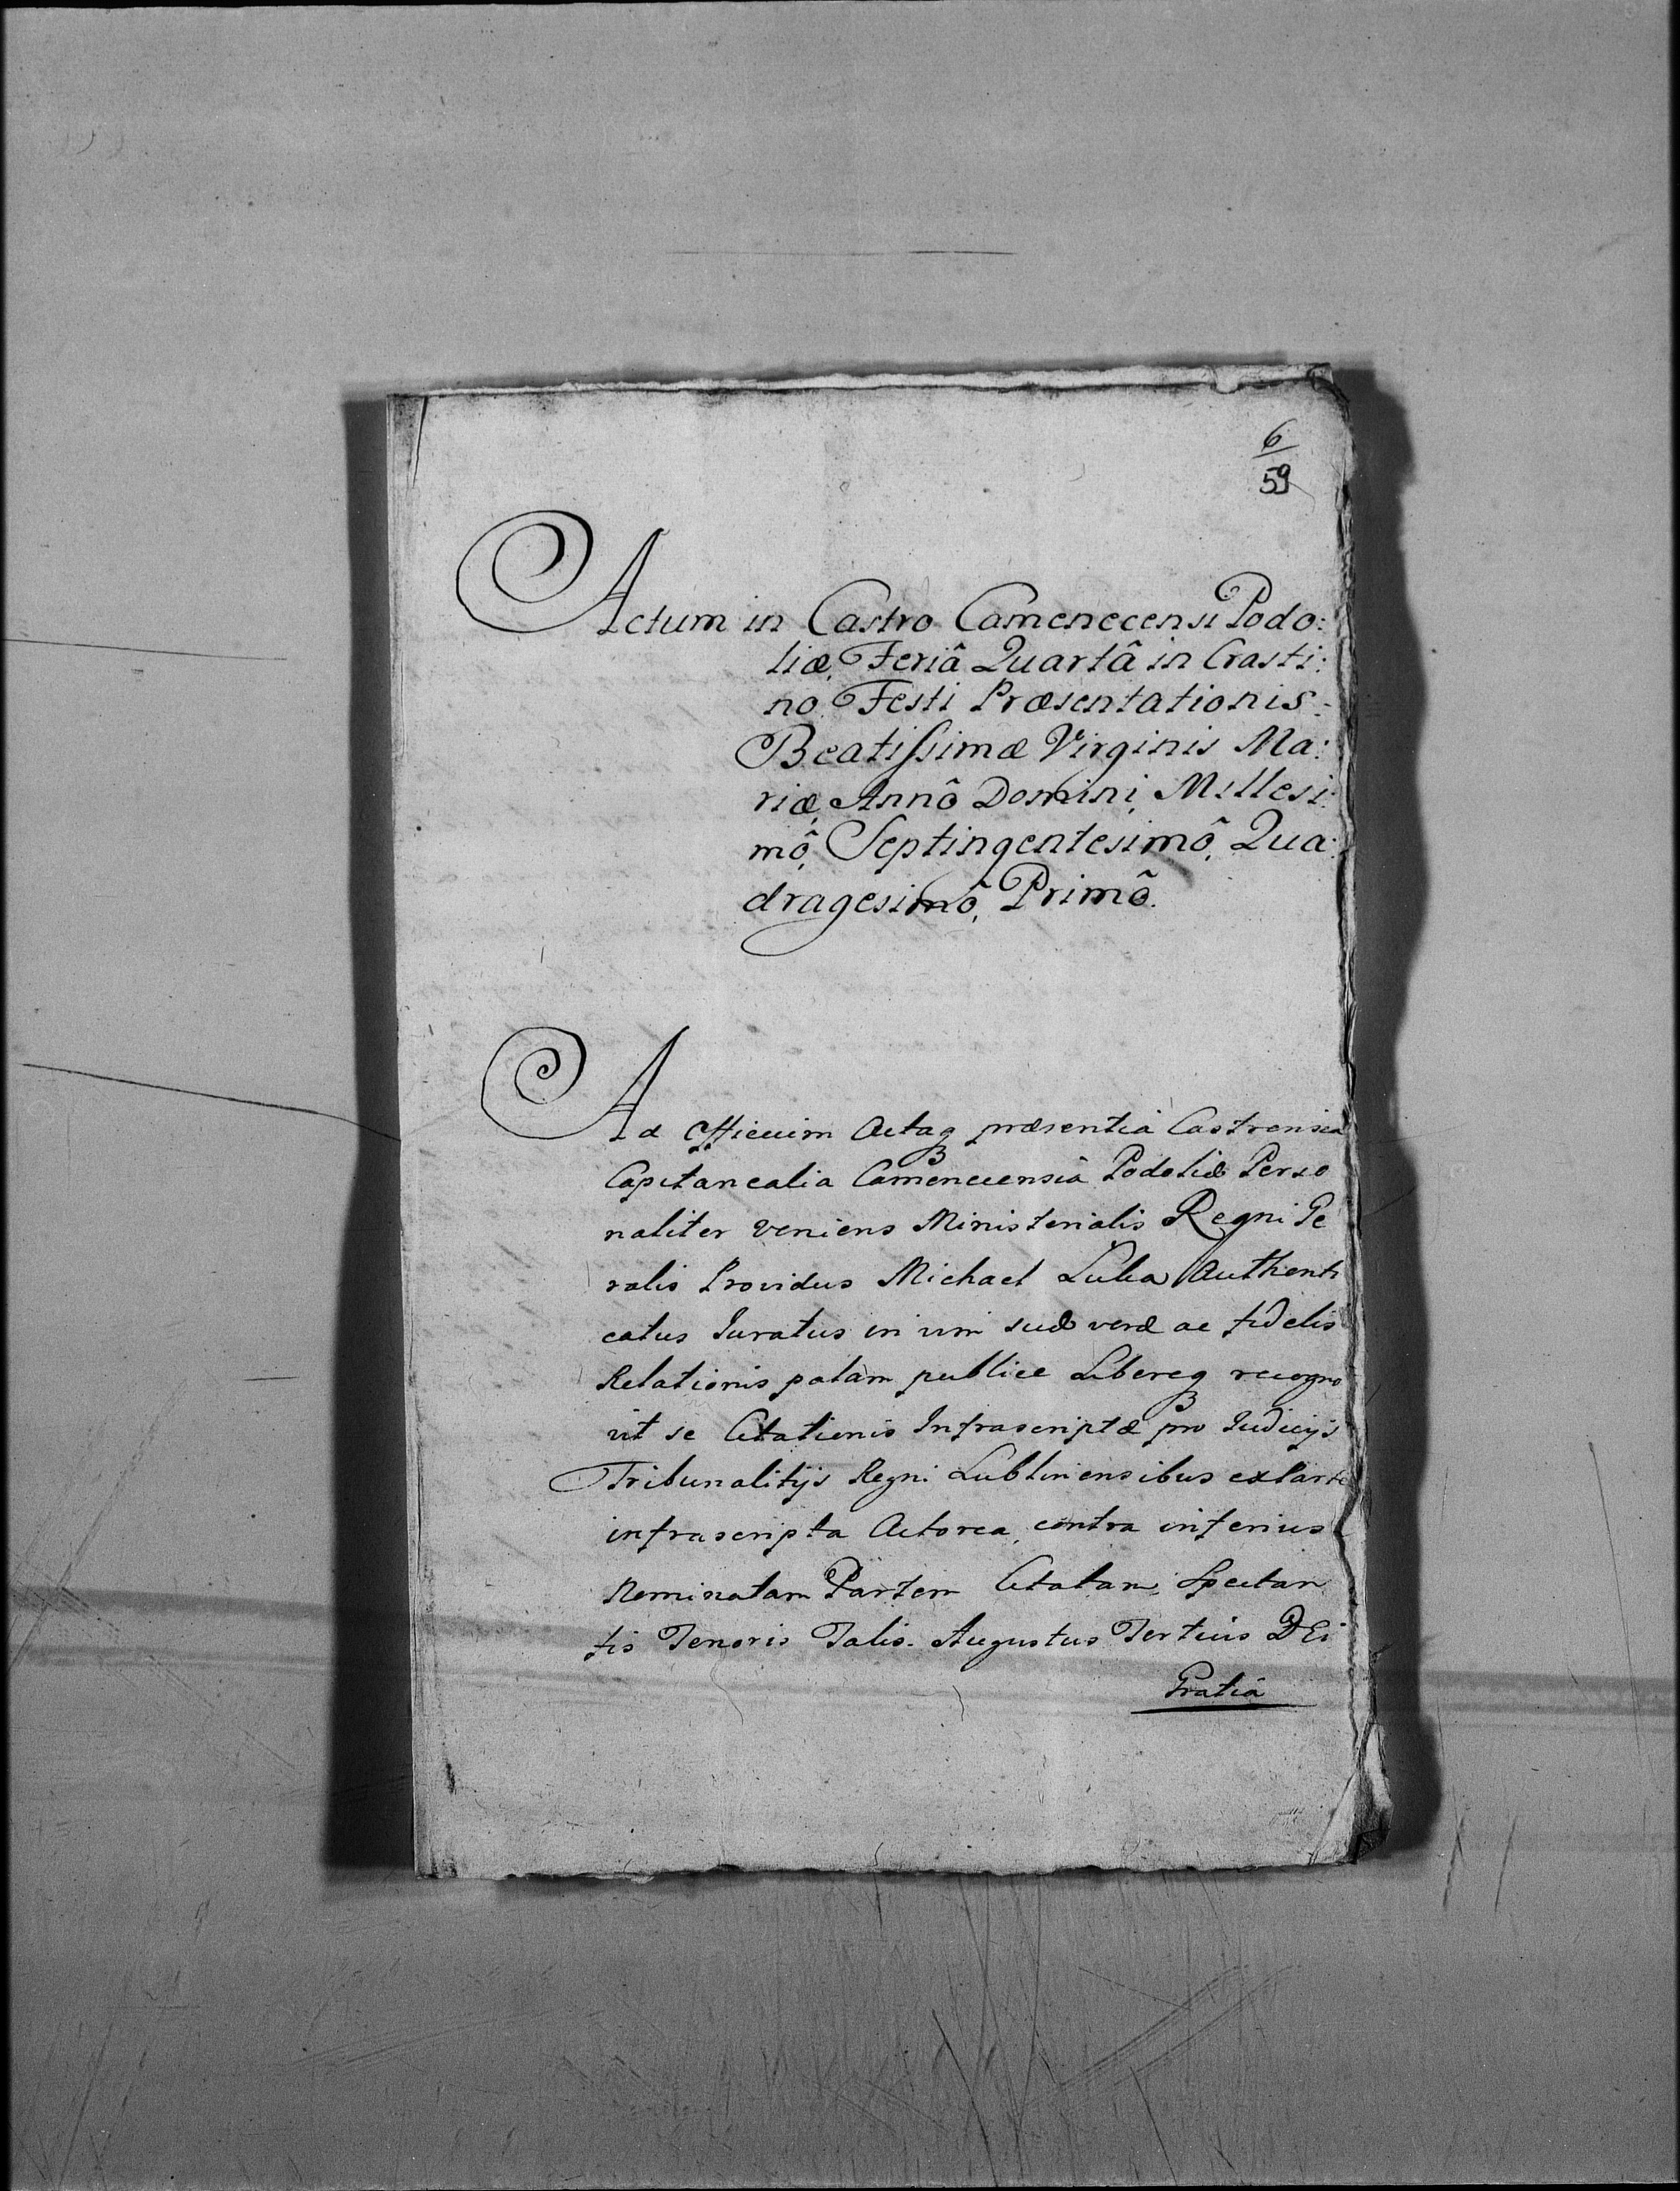 6
59
Actum in Castro Camenecensi Podo:
liæ, Feriâ Quartâ in Crasti:
no Festi Præsentationis:
Beatissimæ Virginis Ma:
riæ, Annô Domini, Millesi:
mô, Septingentesimô, Qua:
dragesimô, Primô.
Ad Officium Actaq3 præsentia Castrensia
Capitanealia Camenecensia Podoliæ Perso
naliter veniens Ministerialis Regni Ge
ralis Providus Michael Authenti
catus Juratus in vim suæ veræ ac fidelis
Relationis palam publice Libereq3 recogno
vit se Citationis Infrascriptæ pro Judicijs
Tribunalitijs Regni Lublinensibus ex Parte
infrascripta Actorea, contra inferius
Nominatam Partem Citatam, Spectan
tis Tenoris Talis. Augustus Tertius DEi
Gratia